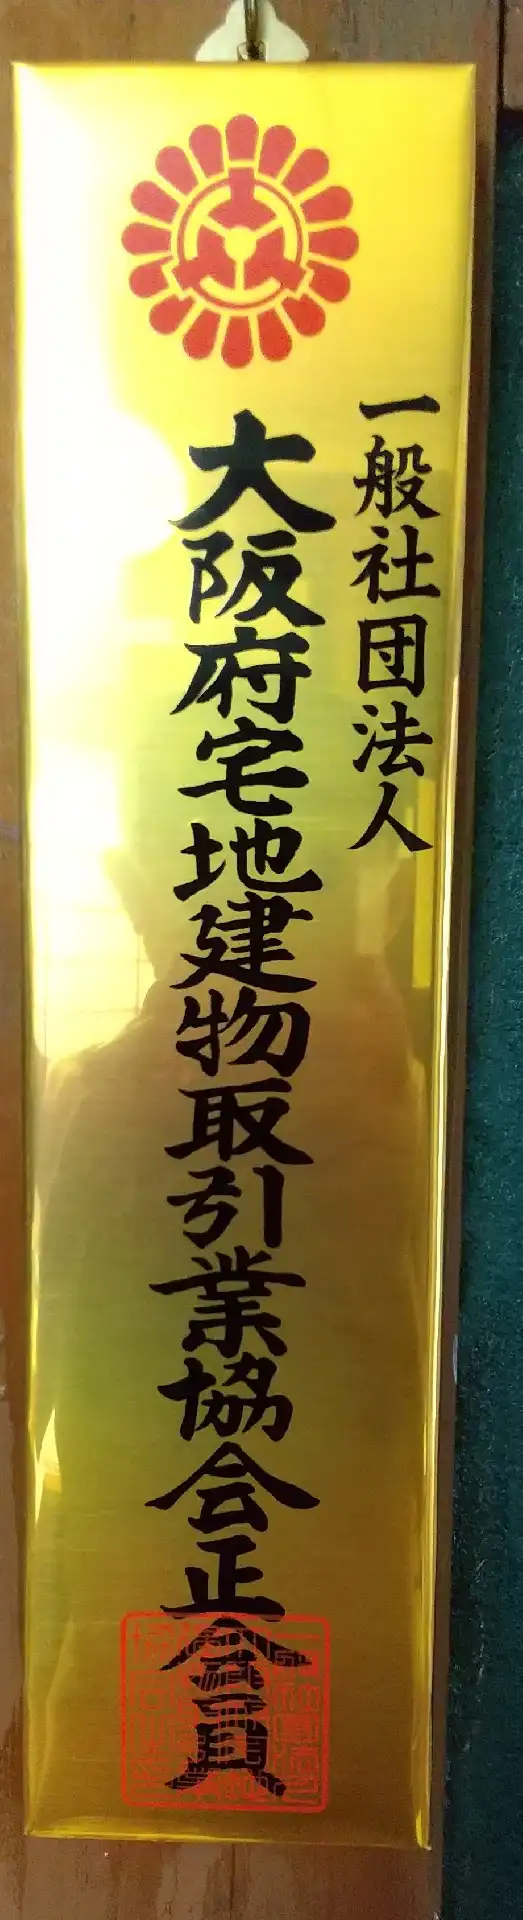 一般社団法人
大阪府宅地建物取引業協会正会員